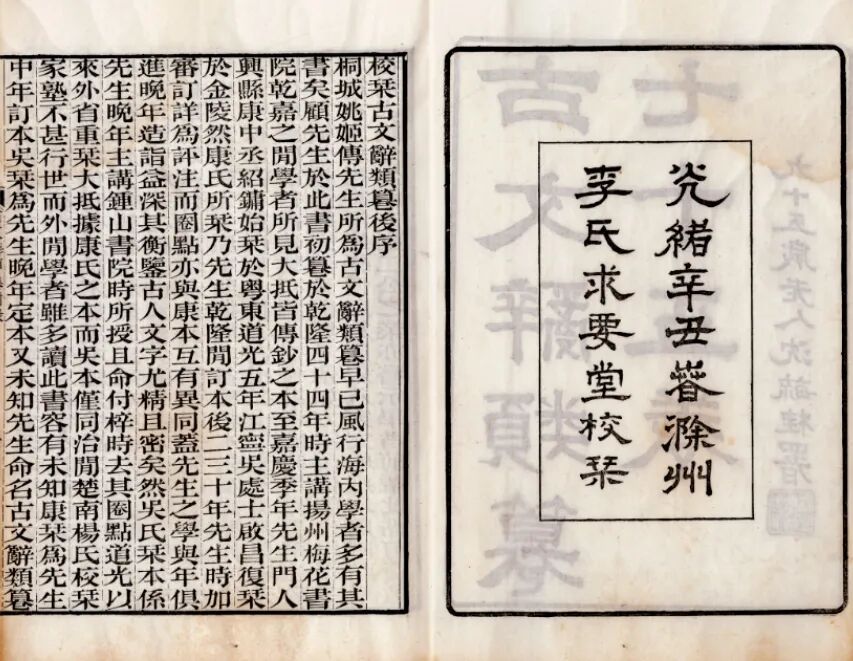 光緒辛丑春滁州
李氏求要堂校栞
校栞古文辭類篹後序
桐城姚姬傳先生所爲古文辭類篹早已風行海內學者多有其
書矣顧先生於此書初篹於乾隆四十四年時主講揚州梅花書
院乾嘉之閒學者所見大抵皆傳鈔之本至嘉慶季年先生門人
興縣康中丞紹鏞始栞於粵東道光五年江寧吳處士啟昌復栞
於金陵然康氏所栞乃先生乾隆閒訂本後二三十年先生時加
審訂詳爲評注而圈點亦與康本互有異同蓋先生之學與年俱
進晚年造詣益深其衡鑑古人文字尤精且密矣然吳氏栞本係
先生晚年主講鍾山書院時所授且命付梓時去其圈點道光以
來外省重栞大抵據康氏之本而吳本僅同治閒楚南楊氏校栞
家塾不甚行世而外閒學者雖多讀此書容有未知康栞爲先生
中年訂本吳栞爲先生晚年定本又未知先生命名古文辭類篹